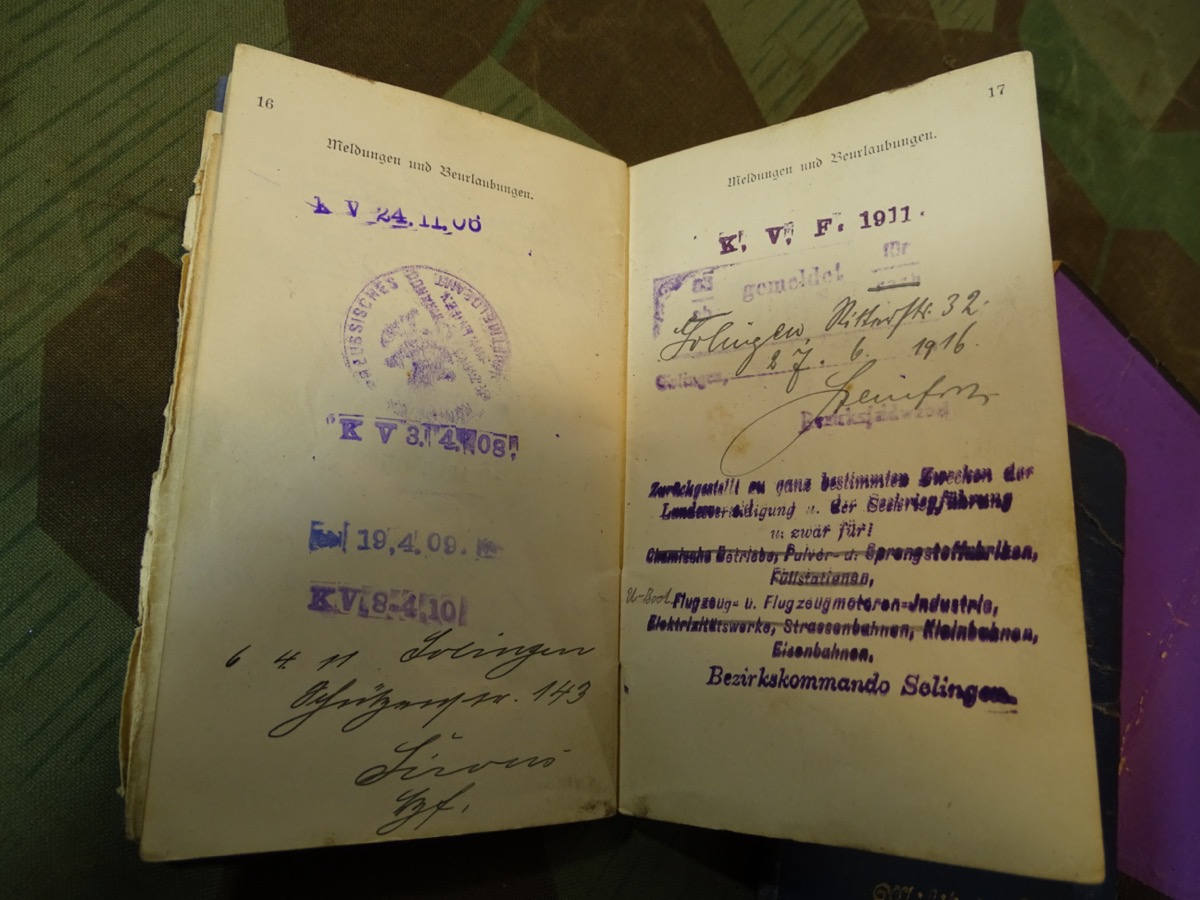 16
Meldungen und Beurlaubungen.
K V 24.11.06
PREUSSISCHES
HAUPTMELDEAMT.
K V 3. 4. 08.
19.4.09.
K V. 8-4.10
6 4. 11 Solingen
Schützenstr. 143
17
Meldungen und Beurlaubungen.
K. V. F. 1911.
gemeldet für
nach
Solingen, Ritterstr. 32.
Solingen, 27. 6. 1916.
Bezirksfeldwebel
Zurückgestellt zu ganz bestimmten Zwecken der
Landesverteidigung u. der Seekriegführung
u. zwar für:
Chemische Betriebe, Pulver- u. Sprengstoffabriken,
Füllstationen,
U-Boot. Flugzeug- u. Flugzeugmotoren-Industrie,
Elektrizitätswerke, Strassenbahnen, Kleinbahnen,
Eisenbahnen.
Bezirkskommando Solingen.